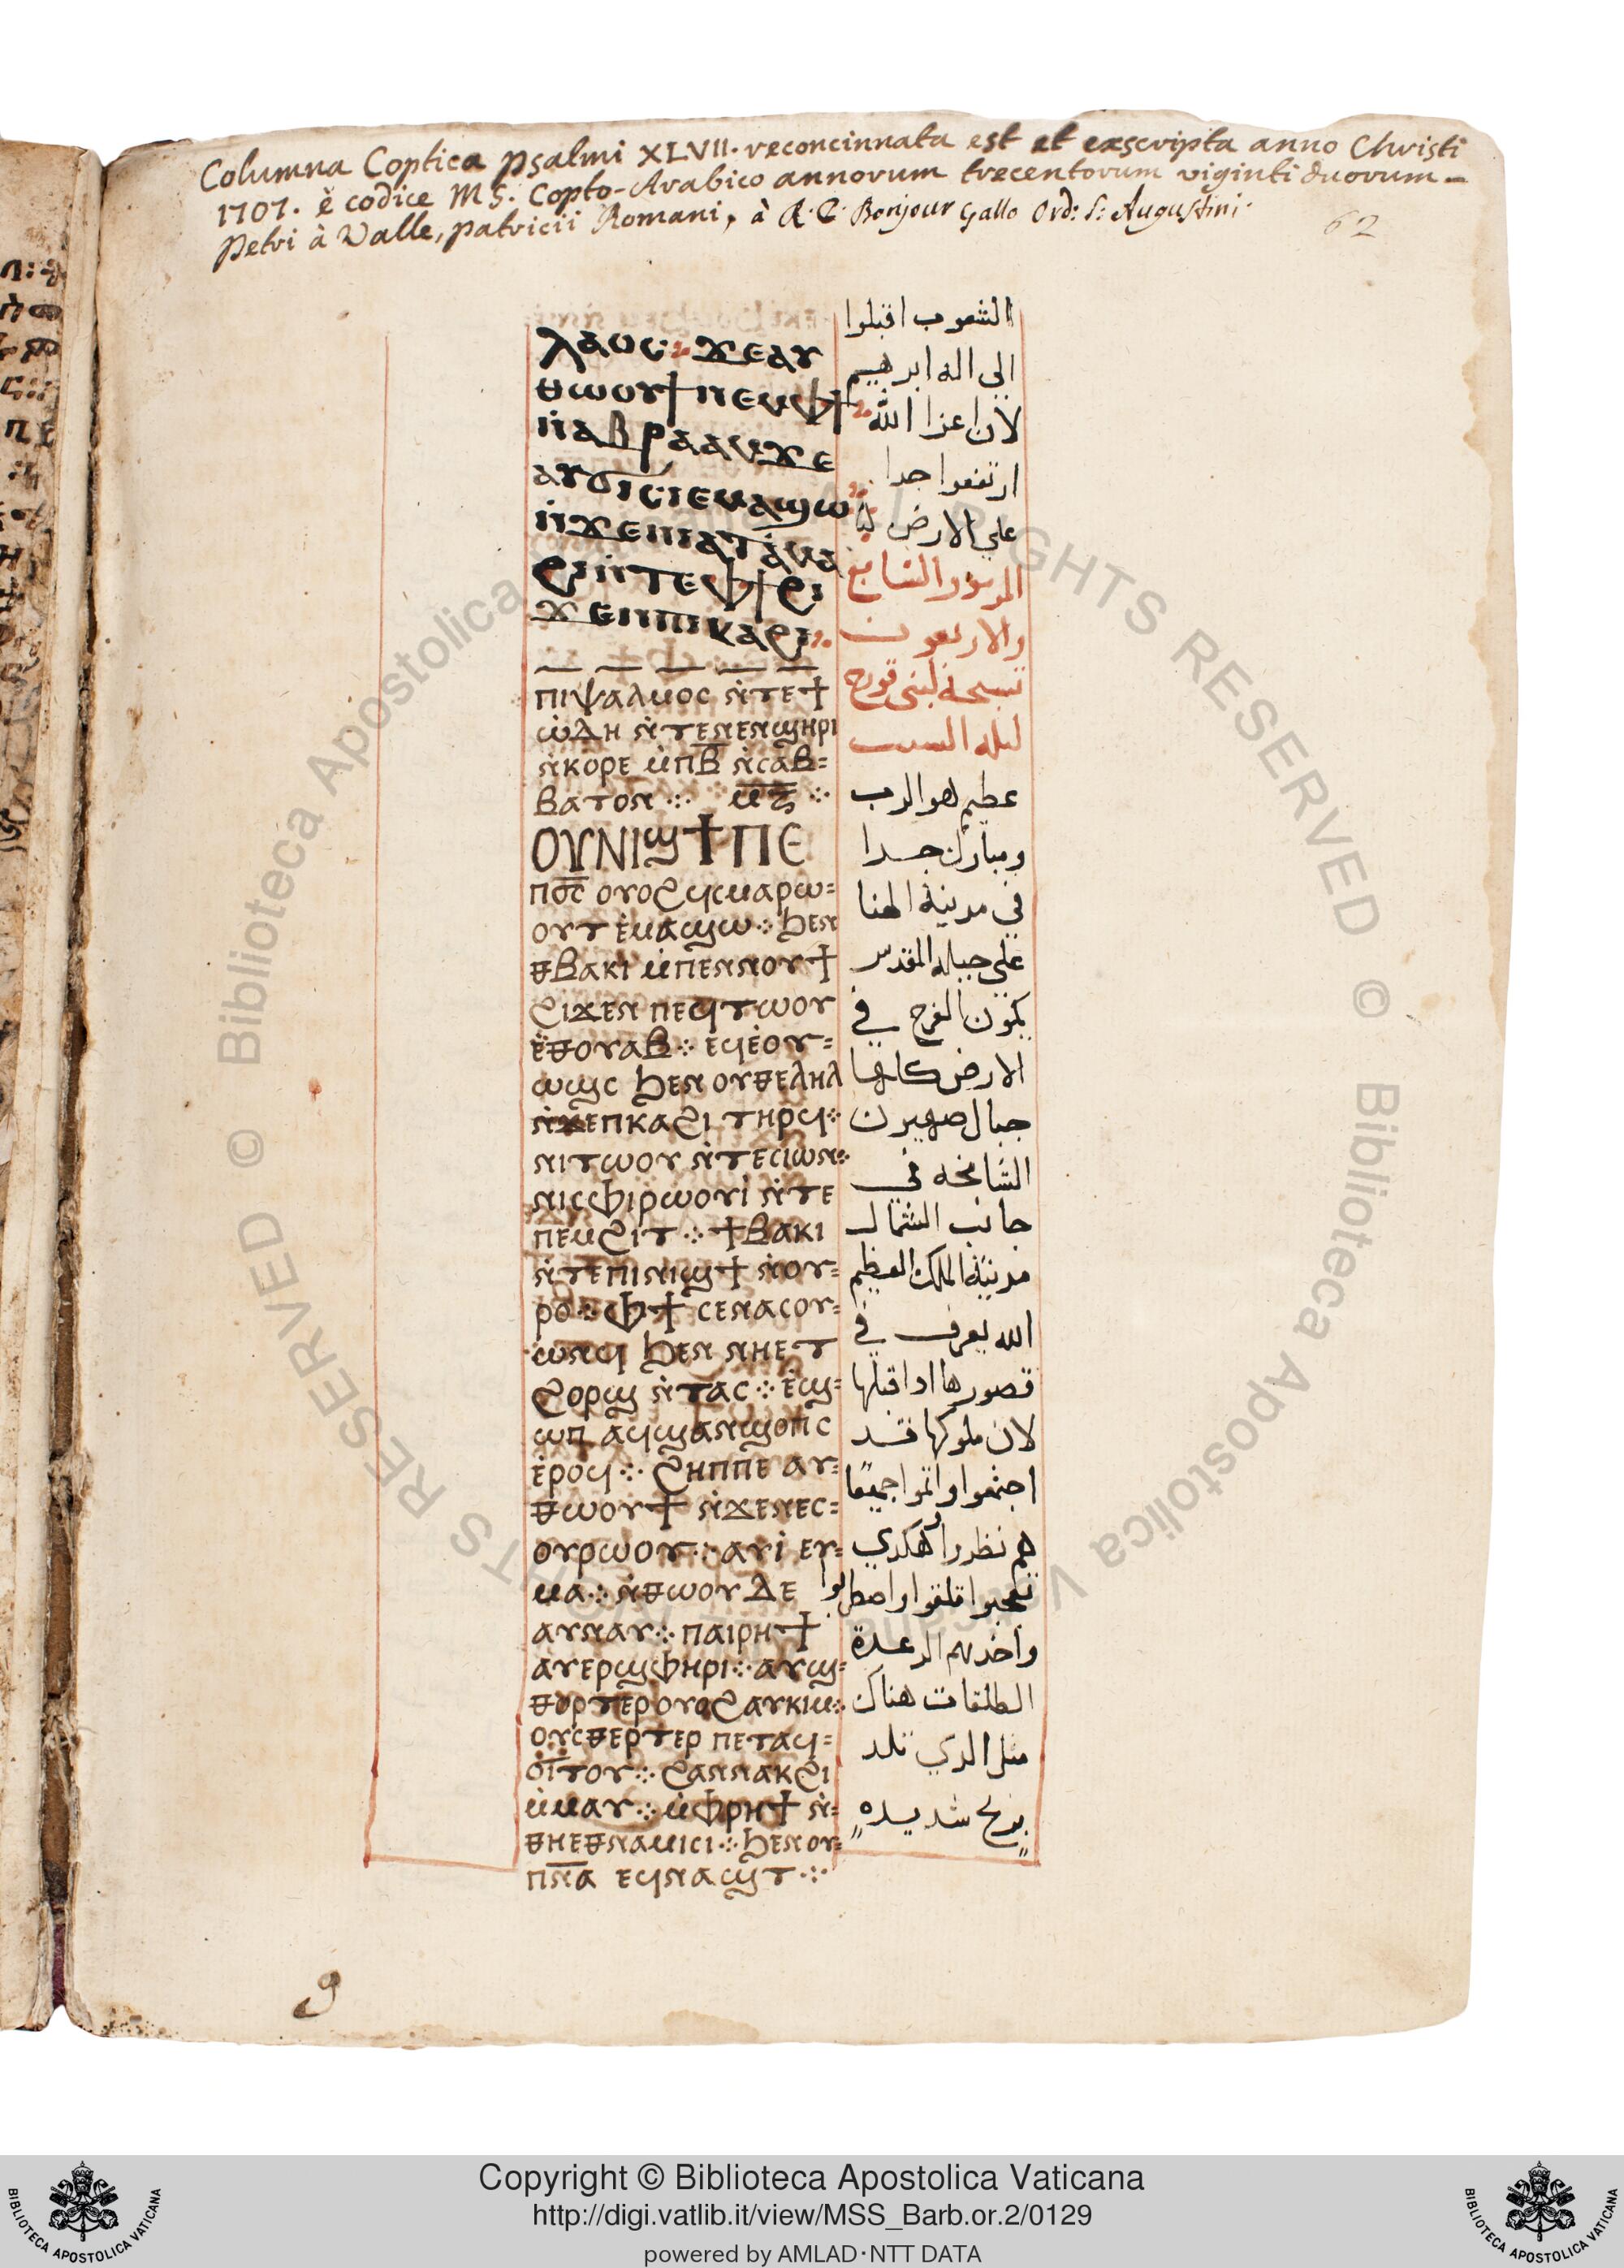 Columna Coptica psalmi XLVII. reconcinnata est et exscripta anno Christi
1707. è codice MS. Copto-Arabico annorum trecentorum viginti duorum –
Petri à Valle, patricii Romani, à R. P. Bonjour Gallo Ord: S: Augustini.
62
ⲗⲁⲟⲥ ϫⲉⲁⲩ
ⲑⲱⲟⲩϯ ⲛⲉⲙⲫϯ
ⲛ̀ⲁⲃⲣⲁⲁⲙ ϫⲉ
ⲁⲩϭⲓⲥⲓ ⲉⲙⲁϣⲱ
ⲛ̀ϫⲉⲛⲓⲁⲧⲁⲙⲁ
ϩⲓ ⲛ̀ⲧⲉⲫϯ ϩⲓ
ϫⲉⲛⲡⲓⲕⲁϩⲓ
ⲡⲓⲯⲁⲗⲙⲟⲥ ⲛ̀ⲧⲉϯ
ⲱ̀ⲇⲏ ⲛ̀ⲧⲉⲛⲉⲛϣⲏⲣⲓ
ⲛ̀ⲕⲟⲣⲉ ⲙ̀ⲡⲃ̅ ⲛ̀ⲥⲁⲃ=
ⲃⲁⲧⲟⲛ ⁘ ⲙ̅ⲍ̅ ⁘
ⲟⲩⲛⲓϣϯ ⲡⲉ
ⲡϭ̅ⲥ̅ ⲟⲩⲟϩ ϥⲥⲙⲁⲣⲱ=
ⲟⲩⲧ ⲉ̀ⲙⲁϣⲱ ⁘ ϧⲉⲛ
ⲑⲃⲁⲕⲓ ⲙ̀ⲡⲉⲛⲛⲟⲩϯ
ϩⲓϫⲉⲛ ⲡⲉϥⲧⲱⲟⲩ
ⲉ̀ⲑⲟⲩⲁⲃ ⁘ ⲉϥⲉ̀ⲟⲩ=
ⲱϣⲥ ϧⲉⲛ ⲟⲩⲑⲉⲗⲏⲗ
ⲛ̀ϫⲉⲡⲕⲁϩⲓ ⲧⲏⲣϥ ⁘
ⲛⲓⲧⲱⲟⲩ ⲛ̀ⲧⲉⲥⲓⲱⲛ ⁘
ⲛⲓⲥⲫⲓⲣⲱⲟⲩⲓ̀ ⲛ̀ⲧⲉ
ⲡⲉⲙϩⲓⲧ ⁘ ϯⲃⲁⲕⲓ
ⲛ̀ⲧⲉⲡⲓⲛⲓϣϯ ⲛ̀ⲟⲩ=
ⲣⲟ ⁘ ⲫϯ ⲥⲉⲛⲁⲥⲟⲩ=
ⲱⲛϥ ϧⲉⲛ ⲛⲏⲉⲧ
ϩⲟⲣϣ ⲛ̀ⲧⲁⲥ ⁘ ⲉ̀ϣ=
ⲱⲡ ⲁϥϣⲁⲛϣⲟⲡⲥ
ⲉ̀ⲣⲟϥ ⁘ ϩⲏⲡⲡⲉ ⲁⲩ=
ⲑⲱⲟⲩϯ ⲛ̀ϫⲉⲛⲉⲥ=
ⲟⲩⲣⲱⲟⲩ ⁘ ⲁⲩⲓ̀ ⲉⲩ=
ⲙⲁ ⁘ ⲛ̀ⲑⲱⲟⲩ ⲇⲉ
ⲁⲩⲛⲁⲩ ⁘ ⲡⲁⲓⲣⲏϯ
ⲁⲩⲉⲣϣⲫⲏⲣⲓ ⁘ ⲁⲩϣ=
ⲑⲟⲣⲧⲉⲣ ⲟⲩⲟϩ ⲁⲩⲕⲓⲙ ⁘
ⲟⲩⲥⲑⲉⲣⲧⲉⲣ ⲡⲉⲧⲁϥ=
ϭⲓⲧⲟⲩ ⁘ ϩⲁⲛⲛⲁⲕϩⲓ
ⲙ̀ⲙⲁⲩ ⁘ ⲙ̀ⲫⲣⲏϯ ⲛ̀=
ⲑⲏⲉⲑⲛⲁⲙⲓⲥⲓ ⁘ ϧⲉⲛ ⲟⲩ=
ⲡⲛ̅ⲁ̅ ⲉϥⲛⲁϣⲧ ⁘
الشعوب اقبلوا
الي اله ابرهيم
لان اعزا الله
ارتفعوا جدا
علي الارض
المزمور السابع
والاربعون
تسبحة لبني قورح
ليله السبت
عظيم هو الرب
ومبارك جدا
في مدينة الهنا
علي جبله المقدس
يكون الفرح في
الارض كلها
جبال صهيون
الشامخه في
جانب الشمال
مدينة الملك العظيم
الله يعرف في
قصورها ادا قبلها
لان ملوكها قد
اجتمعوا واتوا جميعًا
هم نظروا هكدي
تعجبوا قلقوا واضطربوا
واخدتهم الرعدة
الطلقات هناك
مثل الدي تلد
بريح شديده
9
Copyright © Biblioteca Apostolica Vaticana
http://digi.vatlib.it/view/MSS_Barb.or.2/0129
powered by AMLAD·NTT DATA
BIBLIOTECA APOSTOLICA VATICANA
BIBLIOTECA APOSTOLICA VATICANA